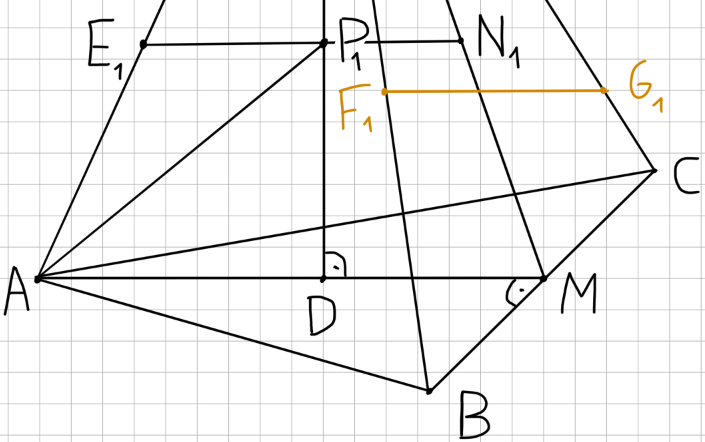 E₁
P₁
N₁
F₁
G₁
C
A
D
M
B